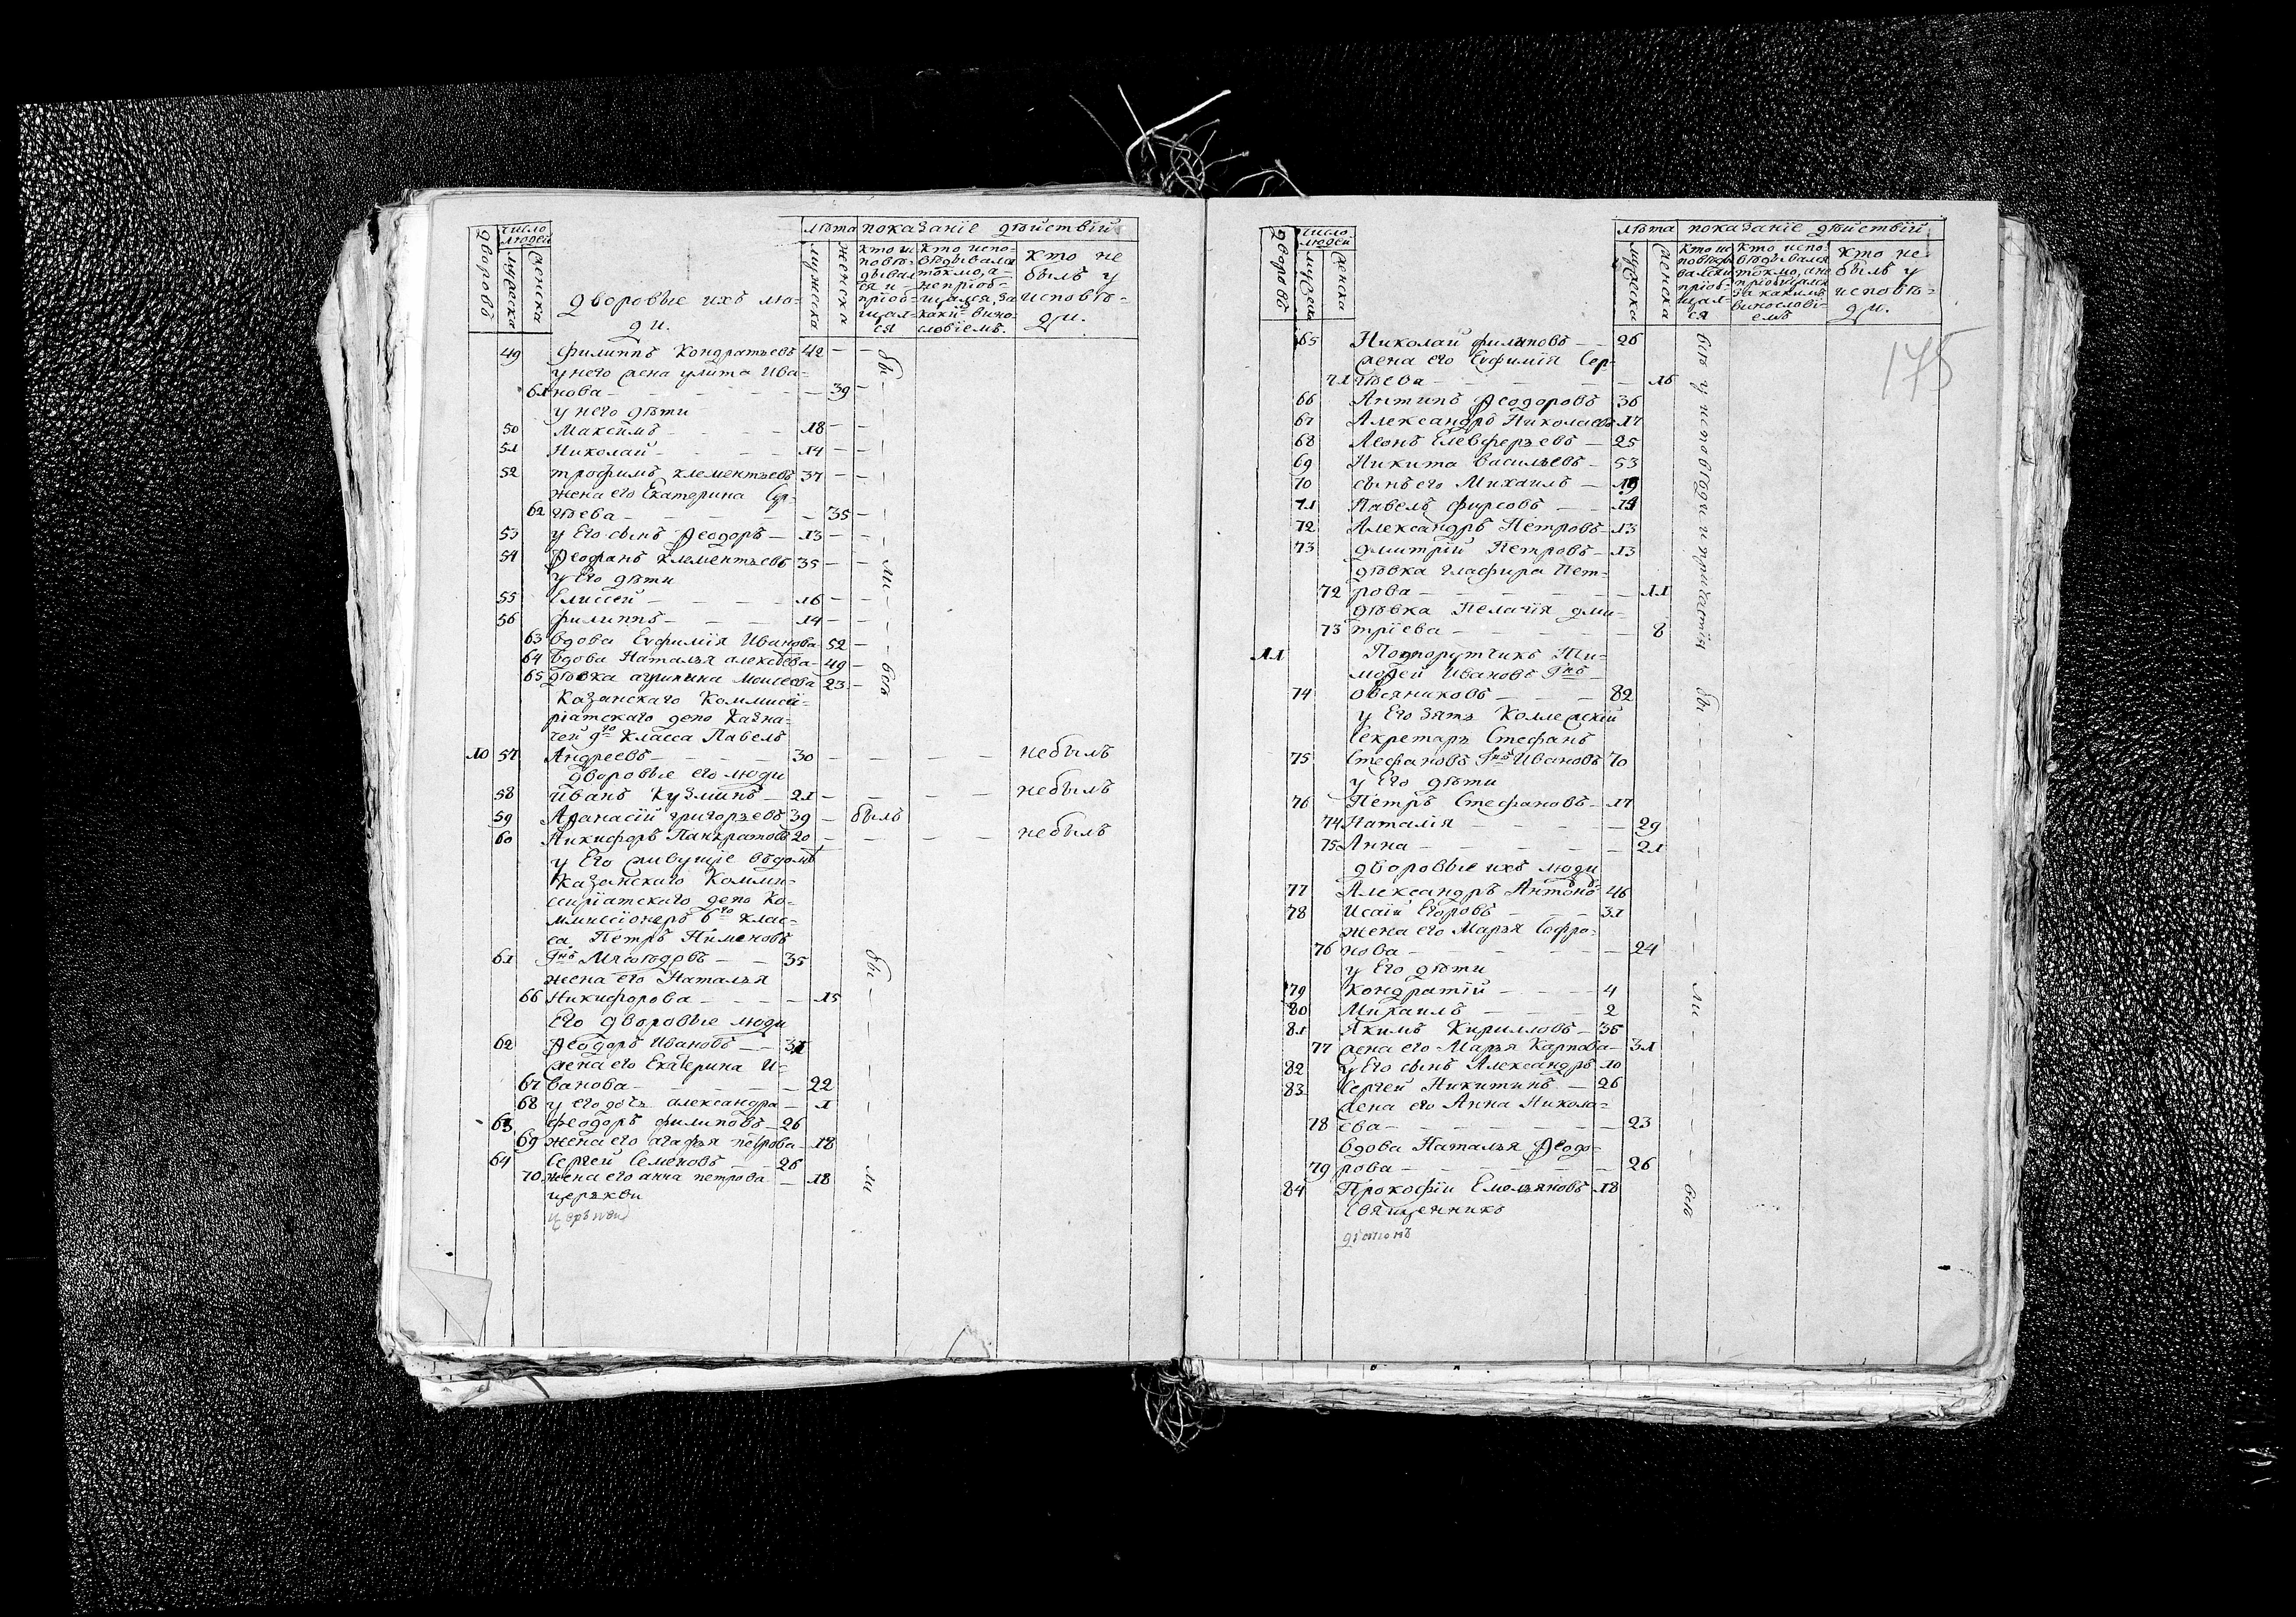 дворовъ
число людей
мужеска
женска
дворовые ихъ лю-
ди.
лѣта
мужеска
женска
показанїе дѣйствїй
кто ис
повѣ-
дывал
ся и
прїоб-
щал-
ся
кто испо-
вѣдывался
токмо, а
не прїоб-
щался, за
каки вино-
словїемъ.
кто не
былъ у
исповѣ-
ди.
49 Филиппъ Кондратьевъ 42 — —
у него жена улита Ива-
61 нова — 39 —
у него дѣти
50 Максимъ — 18 — —
51 Николай — 14 — —
52 трофимъ клементьевъ 37 — —
жена его Екатерина Сер-
62 гѣева — 35 —
53 у Его сынъ Ѳеодоръ — 13 —
54 Ѳеофанъ Клементьевъ 35 — —
у Его дѣти
55 Елисей — 16 — —
56 филиппъ — 14 — —
63 вдова Евфимїя Иванова 52 —
64 вдова Наталья алексѣева 49 —
65 дѣвка агрипина Моисеева 23 —
Казанскаго Коммиса-
рїатскаго депо Казна-
чей 9го класса Павелъ
10 57 Андреевъ — 30 — небылъ
дворовые его люди
58 Иванъ Кузминъ — 21 — небылъ
59 Афанасїй григорьевъ 39 — былъ
60 Никифоръ Панкратовъ 20 — небылъ
у Его живущїе вдомѣ
Казанскаго Комми-
сарїатскаго депо Ко-
ммиссїонеръ 6го клас-
са Петръ Пименовъ
61 Гнъ Мясоѣдовъ — 35
жена его Наталья
66 Никифорова — 15
Его дворовые люди
62 Ѳеодоръ Ивановъ — 31
жена его Екатерина И-
67 ванова — 22
68 у его дочь александра — 1
63 феодоръ филиповъ — 26
69 жена его агафья петрова — 18
64 Сергей Семеновъ — 26
70 жена его анна петрова — 18
церькви
церькви
бы - ли - всѣ
бы - ли
дворовъ
число людей
мужеска
женска
лѣта
мужеска
женска
показанїе дѣйствїй
кто ис
повѣды
вался и
прїоб-
щал-
ся
кто испо-
вѣдывался
токмо, а не
прїобщался
за какимъ
винословї-
емъ
кто не
былъ у
исповѣ-
ди.
175
65 Николай филиповъ — 26
жена его Евфимїя Сер-
71 гѣева — 16
66 Антипъ Ѳеодоровъ 36
67 Александръ Николаевъ 17
68 Леонъ Елевферьевъ — 25
69 Никита Васильевъ — 53
70 сынъ его Михаилъ —
71 Павелъ фирсовъ —
72 Александръ Петровъ — 13
73 дмитрїй Петровъ — 13
дѣвка глафира Пет-
72 рова — 11
дѣвка Пелагїя дми-
73 трїева — 8
11 Подпорутчикъ Ти-
мофей Ивановъ Гнъ
74 Овсяниковъ — 82
у Его зять Коллежскїй
Секретарь Стефанъ
75 Стефановъ Гнъ Ивановъ 70
у Его дѣти
76 Петръ Стефановъ — 17
74 Наталїя — 29
75 Анна — 21
дворовые ихъ люди
77 Александръ Антоновъ 46
78 Исаїй Егоровъ — 31
жена его Марья Софро-
76 нова — 24
у Его дѣти
79 Кондратїй — 4
80 Михаилъ — 2
81 Якимъ Кирилловъ — 35
77 жена его Марья Карпова — 31
82 у Его сынъ Александръ 10
83 Сергей Никитинъ — 26
жена его Анна Никола-
78 ева — 23
вдова Наталья Ѳеодо-
79 рова — 26
84 Прокофїй Емельяновъ 18
священникъ
дїаконъ
всѣ у исповѣди и причастїя бы - ли - всѣ